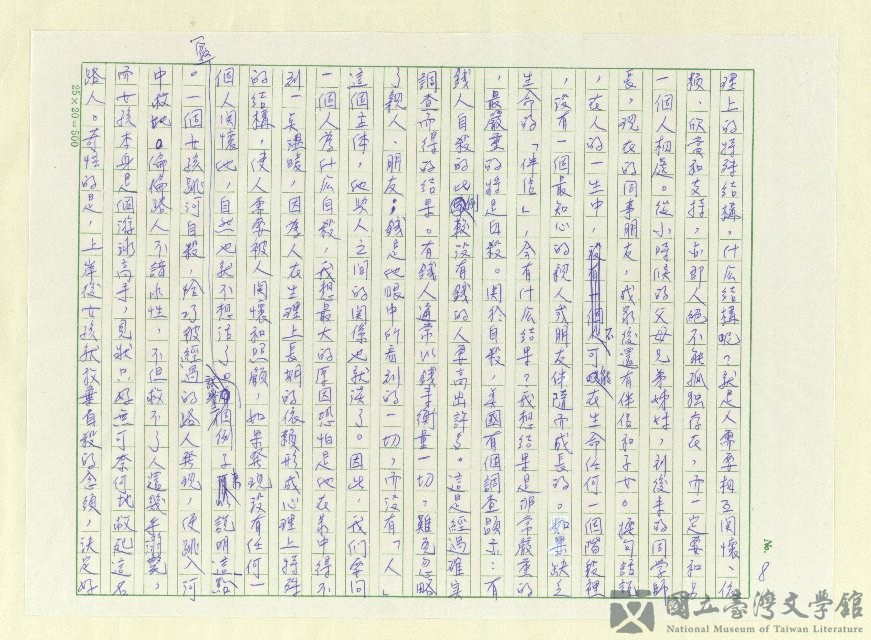 No. 8
理上的特殊結構。什么結構呢？就是人需要相互関懷、依
賴、欣賞和支持，亦即人絕不能孤独存在，而一定要和另
一個人相處。從小時候的父母兄弟姊妹，到後來的同學師
長，現在的同事朋友，或最後還有伴侶和子女。換句話說
，在人的一生中，不可能在生命任何一個階段裡
，沒有一個最知心的親人或朋友伴隨而成長的。如果缺乏
生命的「伴侶」，会有什么結果？我想結果是非常嚴重的
，最嚴重的將是自殺。関於自殺，美國有個調查顯示：有
錢人自殺的比例較沒有錢的人要高出許多。這是經過確實
調查而得的結果。有錢人通常以錢來衡量一切，難免忽略
了親人、朋友；錢是他眼中所看到的一切，而沒有「人」
這個主体，他與人之间的関係也就淡了。因此，我们要问
一個人為什么自殺，我想最大的原因恐怕是他在其中得不
到一点溫暖，因為人在生理上長期的依賴形成心理上特殊
的結構，使人需要被人関懷和照顧，如果發現沒有任何一
個人関懷他，自然他就不想活了。個例子來說明這點
。一個女孩跳河自殺，給了被經過的路人發現，便跳入河
中救她。偏偏路人不諳水性，不但救不了人還幾乎溺斃，
而女孩本身是個游泳高手，見狀只好無可奈何地救起這名
路人。奇怪的是，上岸後女孩就放棄自殺的念頭，決定好
25×20=500
國立臺灣文學館
National Museum of Taiwan Literature